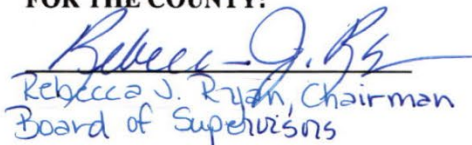 FOR THE COUNTY:
Rebecca J. Ryan
Rebecca J. Ryan, Chairman
Board of Supervisors